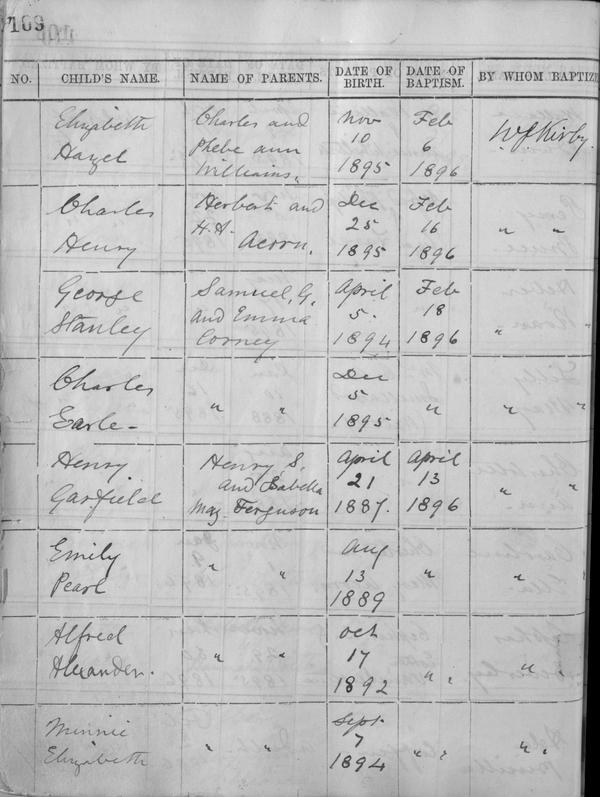 109
NO. CHILD'S NAME. NAME OF PARENTS. DATE OF BIRTH. DATE OF BAPTISM. BY WHOM BAPTIZE
Elizabeth Charles and Nov Feb
Hazel Phebe ann 10 6 W J Kirby.
Williams. 1895 1896
Charles Herbert and Dec Feb
H.A. 25 16 " "
Henry Acorn. 1895 1896
George Samuel, G. April Feb
Stanley and Emma 5. 18 " "
Corney 1894 1896
Charles Dec
" " 5 " " "
Earle- 1895
Henry Henry S. April April
and Isabella 21 13 " "
Garfield May Ferguson 1887. 1896
Emily Aug
" " 13 " "
Pearl 1889
Alfred Oct
Alexander. " " 17 " " " "
1892
Minnie Sept.
" " 7 " " " "
Elizabeth 1894